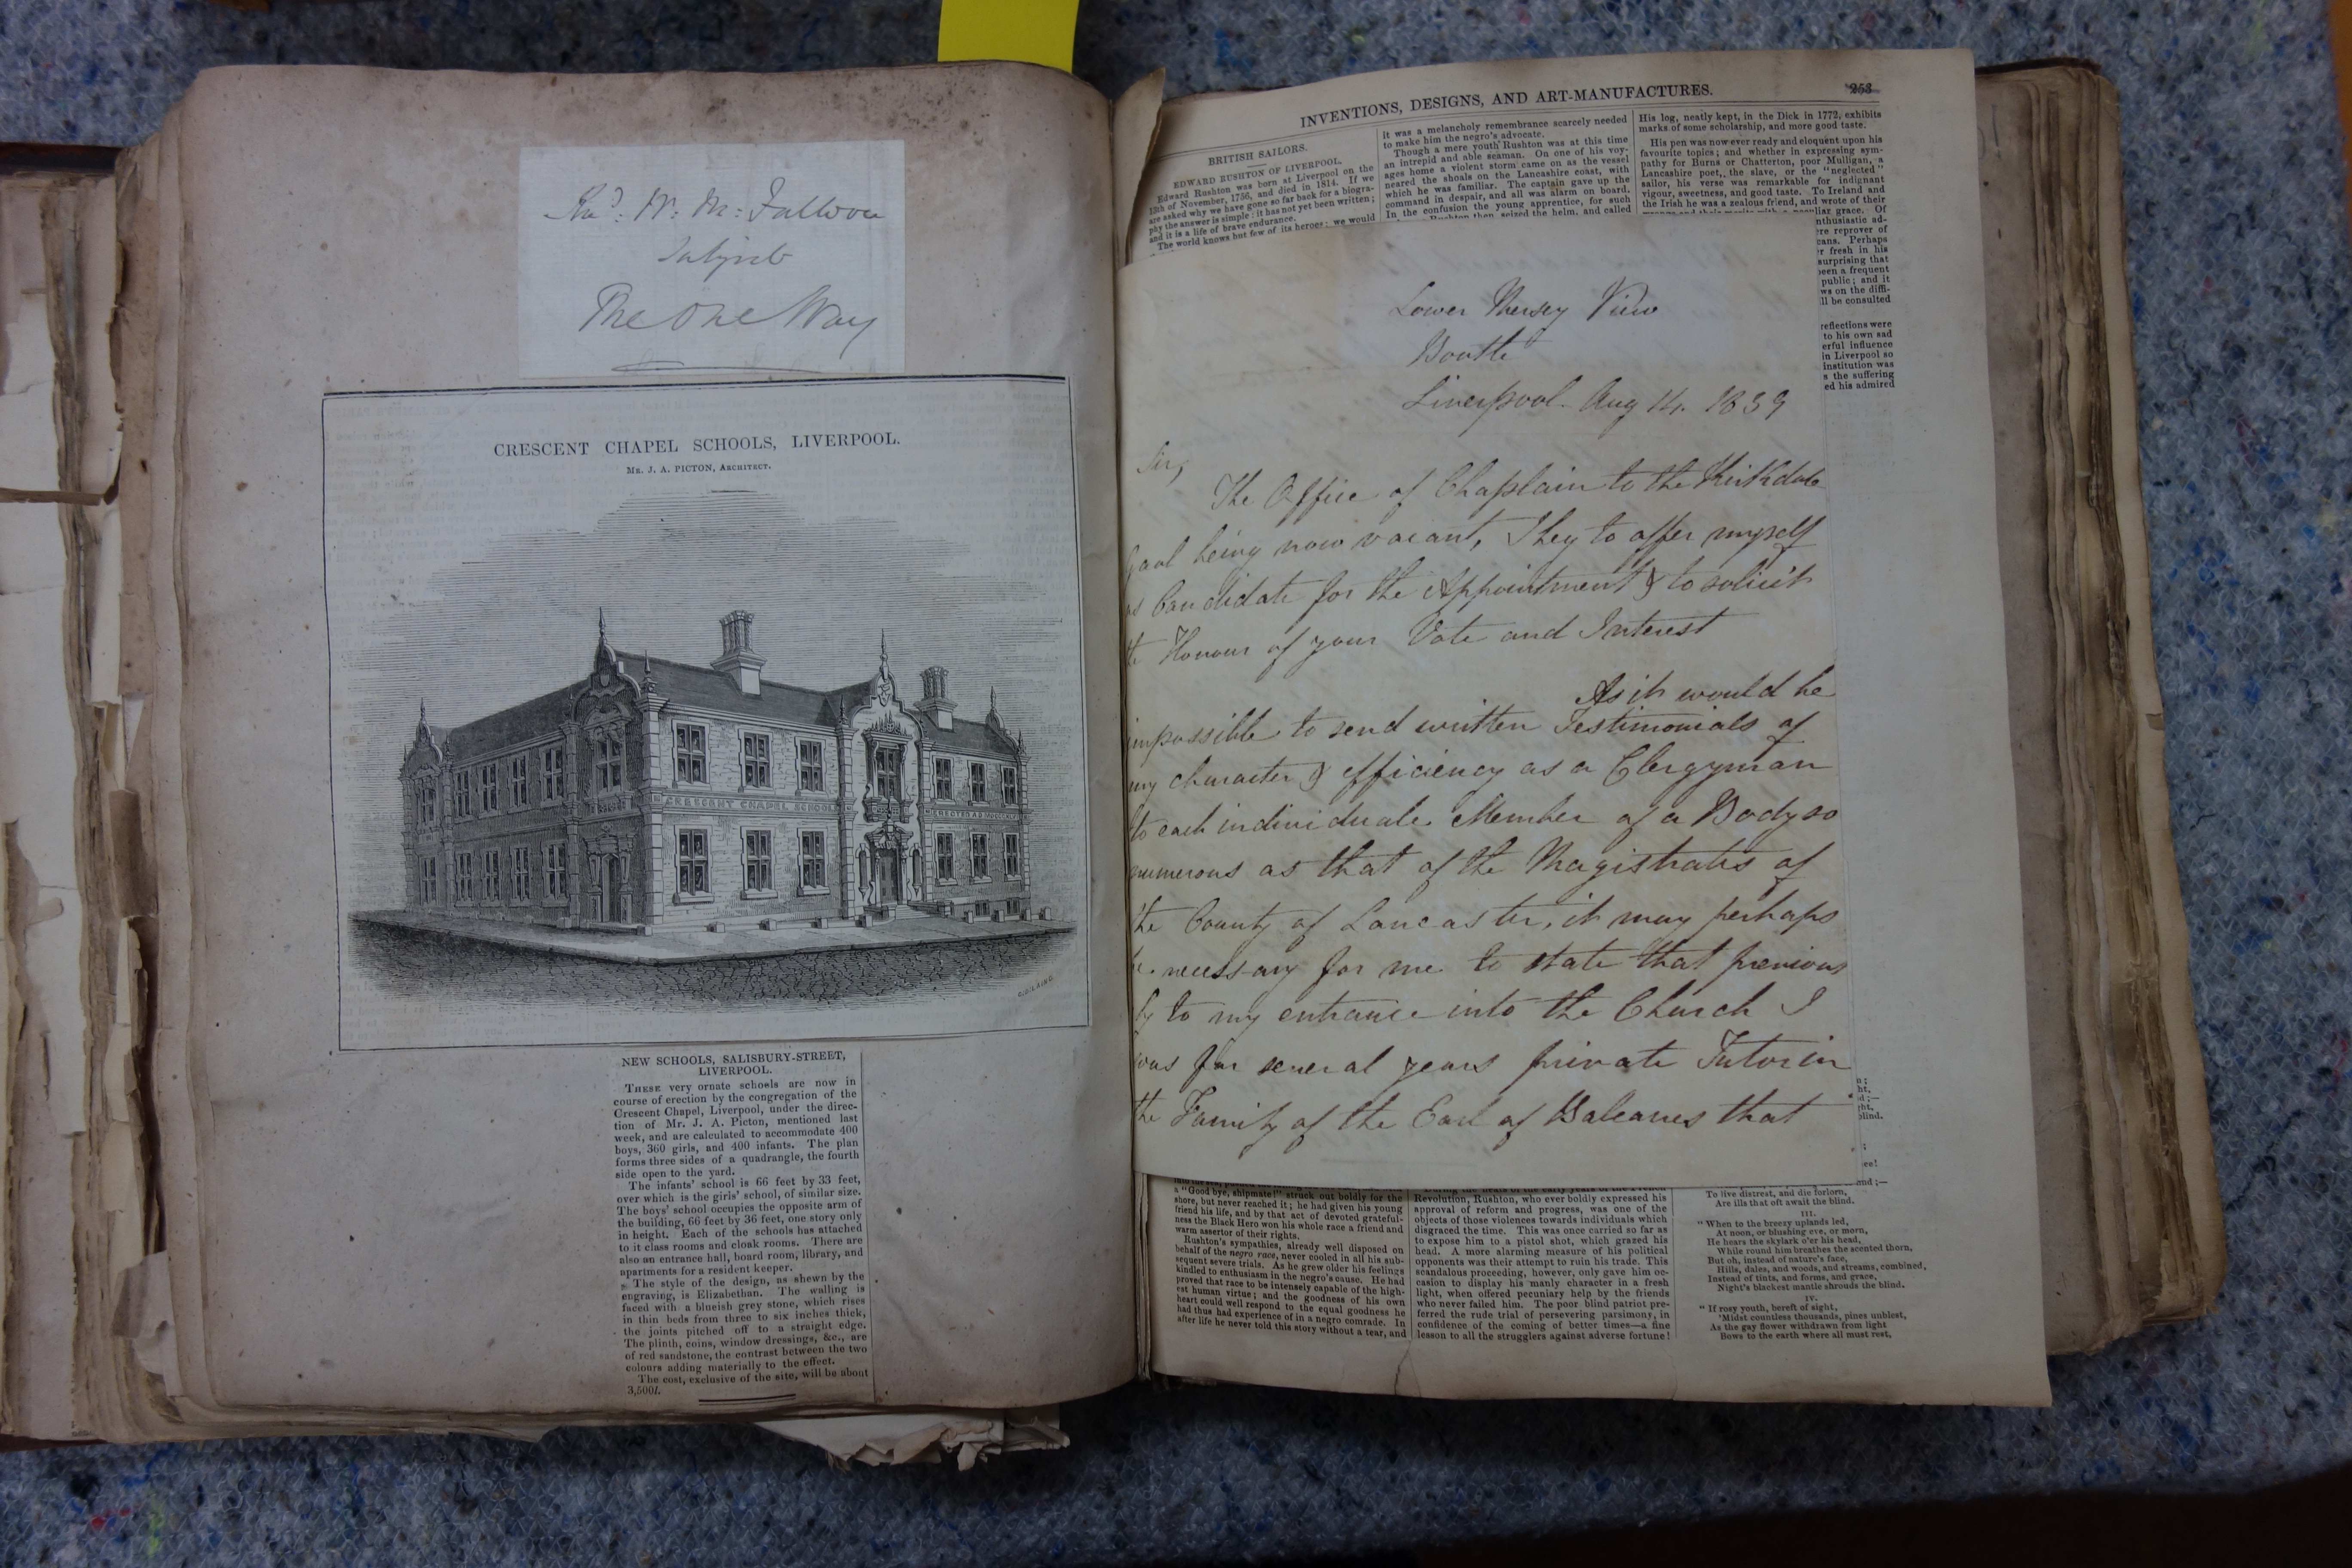 Revd. W. M. Falloon
Subject
The One Way
CRESCENT CHAPEL SCHOOLS, LIVERPOOL.
Mr. J. A. PICTON, Architect.
CRESCENT CHAPEL SCHOOLS
NEW SCHOOLS, SALISBURY-STREET,
LIVERPOOL.
These very ornate schools are now in
course of erection by the congregation of the
Crescent Chapel, Liverpool, under the direc-
tion of Mr. J. A. Picton, mentioned last
week, and are calculated to accommodate 400
boys, 360 girls, and 400 infants. The plan
forms three sides of a quadrangle, the fourth
side open to the yard.
The infants' school is 66 feet by 33 feet,
over which is the girls' school, of similar size.
The boys' school occupies the opposite arm of
the building, 66 feet by 36 feet, one story only
in height. Each of the schools has attached
to it class rooms and cloak rooms. There are
also an entrance hall, board room, library, and
apartments for a resident keeper.
The style of the design, as shewn by the
engraving, is Elizabethan. The walling is
faced with a blueish grey stone, which rises
in thin beds from three to six inches thick,
the joints pitched off to a straight edge.
The plinth, coins, window dressings, &c., are
of red sandstone, the contrast between the two
colours adding materially to the effect.
The cost, exclusive of the site, will be about
3,500l.
INVENTIONS, DESIGNS, AND ART-MANUFACTURES.
253
BRITISH SAILORS.
EDWARD RUSHTON OF LIVERPOOL.
Edward Rushton was born at Liverpool on the
13th of November, 1756, and died in 1814. If we
are asked why we have gone so far back for a biogra-
phy the answer is simple: it has not yet been written;
and it is a life of brave endurance.
The world knows but few of its heroes: we would
it was a melancholy remembrance scarcely needed
to make him the negro's advocate.
Though a mere youth Rushton was at this time
an intrepid and able seaman. On one of his voy-
ages home a violent storm came on as the vessel
neared the shoals on the Lancashire coast, with
which he was familiar. The captain gave up the
command in despair, and all was alarm on board.
In the confusion the young apprentice, for such
Rushton then, seized the helm, and called
His log, neatly kept, in the Dick in 1772, exhibits
marks of some scholarship, and more good taste.
His pen was now ever ready and eloquent upon his
favourite topics; and whether in expressing sym-
pathy for Burns or Chatterton, poor Mulligan, a
Lancashire poet, the slave, or the "neglected"
sailor, his verse was remarkable for indignant
vigour, sweetness, and good taste. To Ireland and
the Irish he was a zealous friend, and wrote of their
peculiar grace. Of
enthusiastic ad-
reprover of
Perhaps
fresh in his
surprising that
been a frequent
public; and it
on the diffi-
be consulted
reflections were
to his own sad
influence
in Liverpool so
institution was
the suffering
his admired
Lower Mersey View
Bootle
Liverpool. Aug 14. 1839
Sir,
The Office of Chaplain to the Kirkdale
Gaol being now vacant, I beg to offer myself
as Candidate for the Appointment & to solicit
the Honour of your Vote and Interest
As it would be
impossible to send written Testimonials of
my character & efficiency as a Clergyman
to each individual Member of a Body so
numerous as that of the Magistrates of
the County of Lancaster, it may perhaps
be necessary for me to state that previous
ly to my entrance into the Church I
was for several years private Tutor in
the Family of the Earl of Balcarres that
a "Good bye, shipmate!" struck out boldly for the
shore, but never reached it; he had given his young
friend his life, and by that act of devoted grateful-
ness the Black Hero won his whole race a friend and
warm assertor of their rights.
Rushton's sympathies, already well disposed on
behalf of the negro race, never cooled in all his sub-
sequent severe trials. As he grew older his feelings
kindled to enthusiasm in the negro's cause. He had
proved that race to be intensely capable of the high-
est human virtue; and the goodness of his own
heart could well respond to the equal goodness he
had thus had experience of in a negro comrade. In
after life he never told this story without a tear, and
During the heats of the early years of the French
Revolution, Rushton, who ever boldly expressed his
approval of reform and progress, was one of the
objects of those violences towards individuals which
disgraced the time. This was once carried so far as
to expose him to a pistol shot, which grazed his
head. A more alarming measure of his political
opponents was their attempt to ruin his trade. This
scandalous proceeding, however, only gave him oc-
casion to display his manly character in a fresh
light, when offered pecuniary help by the friends
who never failed him. The poor blind patriot pre-
ferred the rude trial of persevering parsimony, in
confidence of the coming of better times—a fine
lesson to all the strugglers against adverse fortune!
To live distrest, and die forlorn,
Are ills that oft await the blind.
III.
"When to the breezy uplands led,
At noon, or blushing eve, or morn,
He hears the skylark o'er his head,
While round him breathes the scented thorn,
But oh, instead of nature's face,
Hills, dales, and woods, and streams, combined,
Instead of tints, and forms, and grace,
Night's blackest mantle shrouds the blind.
IV.
"If rosy youth, bereft of sight,
'Midst countless thousands, pines unblest,
As the gay flower withdrawn from light
Bows to the earth where all must rest,